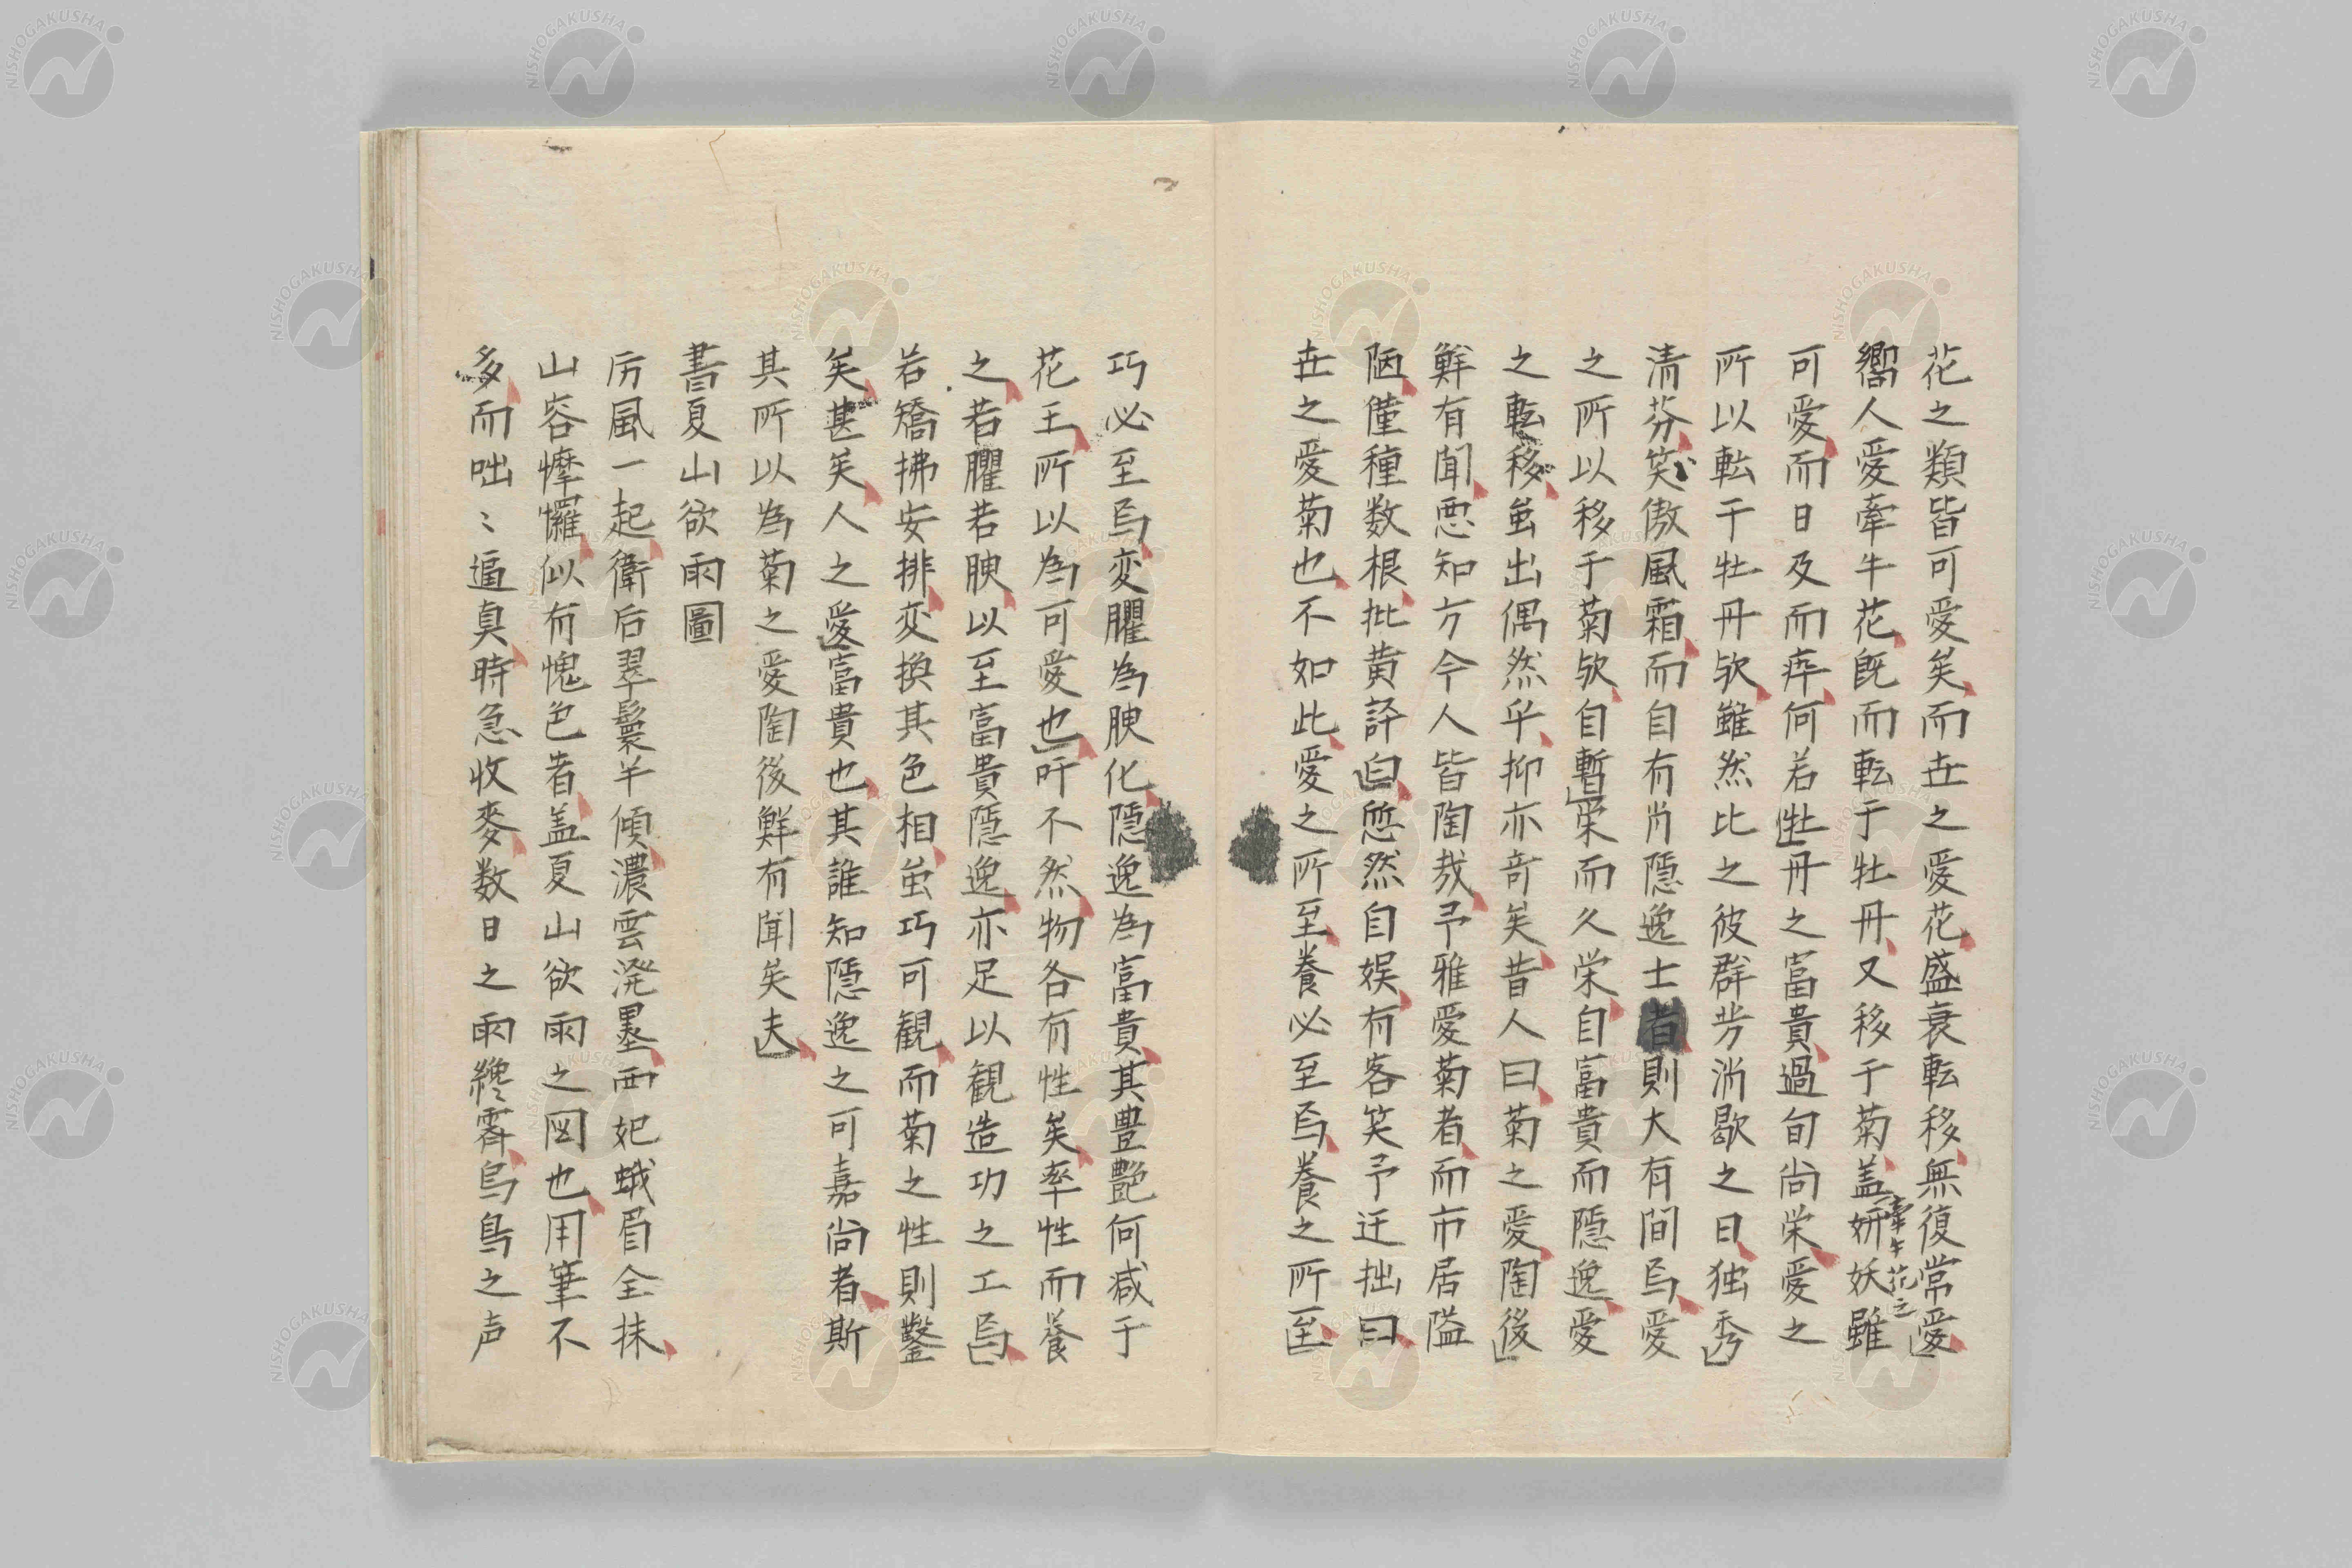 花之類皆可愛矣而丗之愛花盛衰転移無復常愛
嚮人愛牽牛花既而転于牡丹又移于菊盖妍妖雖
牽牛花之
可愛而日及而瘁何若牡丹之富貴過旬尚栄愛之
所以転于牡丹欤雖然比之彼群芳消歇之日独秀
清芬笑傲風霜而自有肖隠逸士者則大有間焉愛
之所以移于菊欤自暫栄而久栄自富貴而隠逸愛
之転移虽出偶然乎抑亦竒矣昔人曰菊之愛陶後
鮮有聞悪知方今人皆陶哉予雅愛菊者而市居隘
陋僅種数根批黄評白怡然自娯有客笑予迂拙曰
丗之愛菊也不如此愛之所至養必至焉養之所至
巧必至焉変臞為腴化隠逸為富貴其豊艶何减于
花王所以為可愛也吁不然物各有性矣率性而養
之若臞若腴以至富貴隠逸亦足以観造功之工焉
若矯拂安排変換其色相虽巧可観而菊之性則鑿
矣甚矣人之愛富貴也其誰知隠逸之可嘉尚者斯
其所以為菊之愛陶後鮮有聞矣夫
書夏山欲雨圖
厉風一起衛后翠鬟半傾濃雲溌墨西妃蛾眉全抹
山容㦄㦬似有愧色者盖夏山欲雨之図也用筆不
多而咄〻逼真時急收麥数日之雨纔霽鳥鳥之声